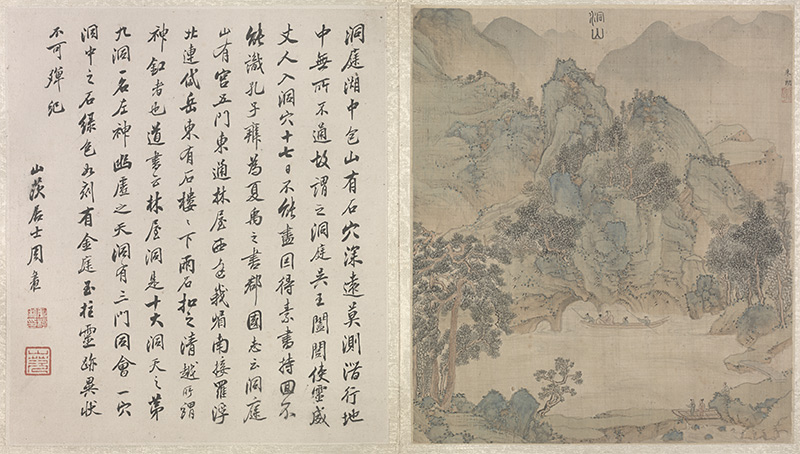 洞庭湖中包山有石穴深遠莫測潛行地
中無所不通故謂之洞庭吳王闔閭使靈威
丈人入洞穴十七日不能盡因得素書持回不
能識孔子辨為夏禹之書郡國志云洞庭
山有宮五門東通林屋西達峩嵋南接羅浮
北連岱岳東有石樓〻下兩石扣之清越所謂
神鉦者也道書云林屋洞是十大洞天之第
九洞一名左神幽虛之天洞有三門同會一穴
洞中之石綠色如刻有金庭玉柱靈跡異狀
不可殫紀
山茨居士周
洞山